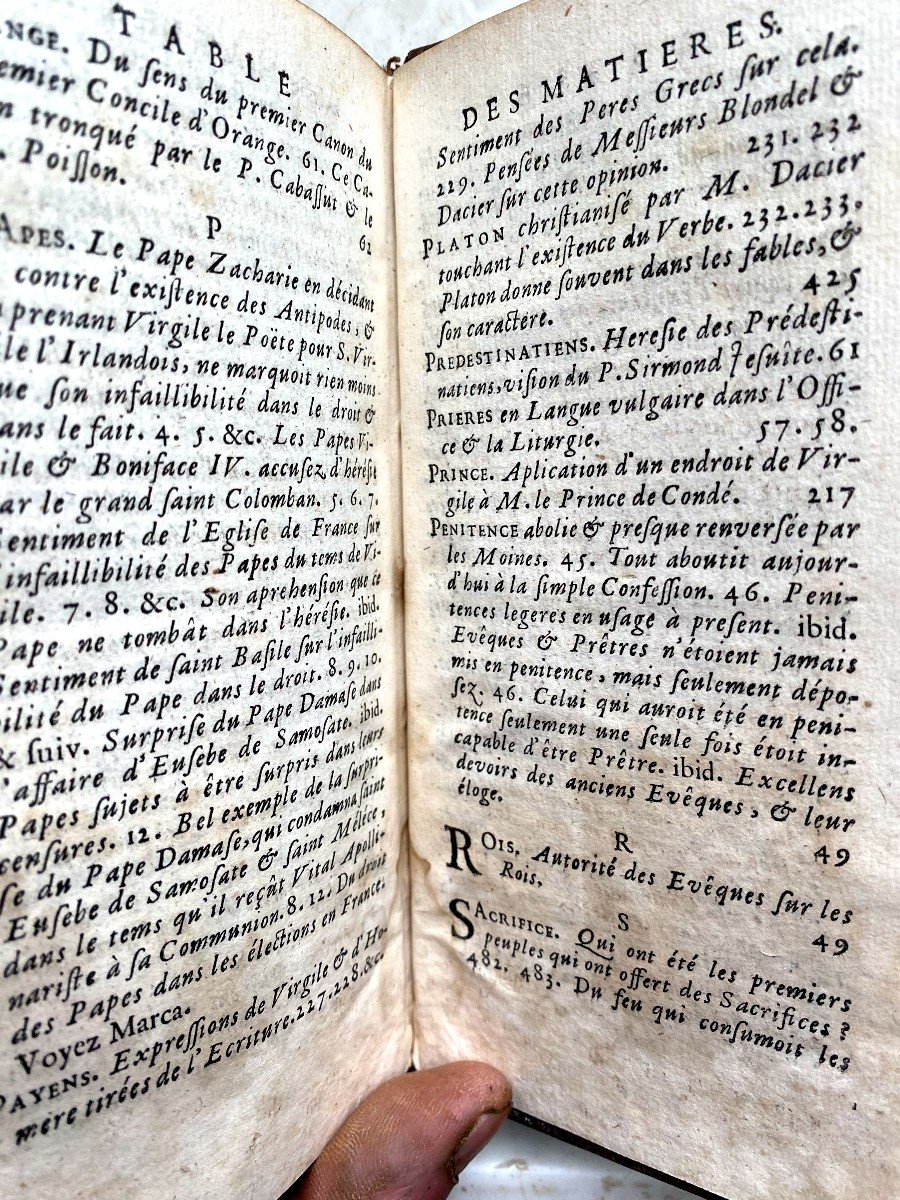 TABLE
ANGE. Du ſens du premier Canon du
premier Concile d'Orange. 61. Ce Ca-
non tronqué par le P. Cabaſſut & le
P. Poiſſon. 62
P
PAPES. Le Pape Zacharie en décidant
contre l'exiſtence des Antipodes, &
prenant Virgile le Poëte pour S. Vir-
gile l'Irlandois, ne marquoit rien moins
que ſon infaillibilité dans le droit &
dans le fait. 4. 5. &c. Les Papes Vi-
gile & Boniface IV. accuſez d'héréſie
par le grand ſaint Colomban. 5. 6. 7.
Sentiment de l'Egliſe de France ſur
l'infaillibilité des Papes du tems de Vi-
gile. 7. 8. &c. Son aprehenſion que ce
Pape ne tombât dans l'héréſie. ibid.
Sentiment de ſaint Baſile ſur l'infailli-
bilité du Pape dans le droit. 8. 9. 10.
& ſuiv. Surpriſe du Pape Damaſe dans
l'affaire d'Euſebe de Samoſate. ibid.
Papes ſujets à être ſurpris dans leurs
cenſures. 12. Bel exemple de la ſurpri-
ſe du Pape Damaſe, qui condamna ſaint
Euſebe de Samoſate & ſaint Méléce,
dans le tems qu'il reçût Vital Apolli-
nariſte à ſa Communion. 8. 12. Du droit
des Papes dans les élections en France.
Voyez Marca.
PAYENS. Expreſſions de Virgile & d'Ho-
mere tirées de l'Ecriture. 227. 228. &c.
DES MATIERES.
Sentiment des Peres Grecs ſur cela.
229. Penſées de Meſſieurs Blondel &
Dacier ſur cette opinion. 231. 232
PLATON chriſtianiſé par M. Dacier
touchant l'exiſtence du Verbe. 232. 233.
Platon donne ſouvent dans les fables, &
ſon caractère. 425
PREDESTINATIENS. Hereſie des Prédeſti-
natiens, viſion du P. Sirmond Jeſuîte. 61
PRIERES en Langue vulgaire dans l'Offi-
ce & la Liturgie. 57. 58.
PRINCE. Aplication d'un endroit de Vir-
gile à M. le Prince de Condé. 217
PENITENCE abolie & preſque renverſée par
les Moines. 45. Tout aboutit aujour-
d'hui à la ſimple Confeſſion. 46. Peni-
tences legeres en uſage à preſent. ibid.
Evêques & Prêtres n'étoient jamais
mis en penitence, mais ſeulement dépo-
ſez. 46. Celui qui auroit été en peni-
tence ſeulement une ſeule fois étoit in-
capable d'être Prêtre. ibid. Excellens
devoirs des anciens Evêques, & leur
éloge. 49
R
ROIS. Autorité des Evêques ſur les
Rois. 49
S
SACRIFICE. Qui ont été les premiers
peuples qui ont offert des Sacrifices ?
482. 483. Du feu qui conſumoit les